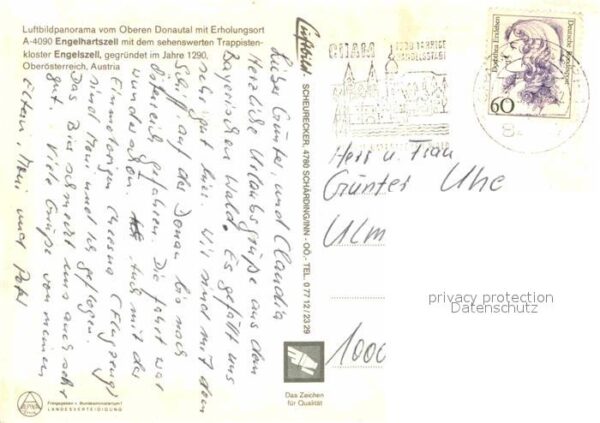 Luftbildpanorama vom Oberen Donautal mit Erholungsort
A-4090 Engelhartszell mit dem sehenswerten Trappisten-
kloster Engelszell, gegründet im Jahre 1290,
Oberösterreich, Austria
Lieber Günter, und Claudia
Herzliche Urlaubsgrüße aus dem
Bayerischen Wald. Es gefällt uns
sehr gut hier. Wir sind mit dem
Schiff auf der Donau bis nach
Östereich gefahren. Die fahrt war
wunderschön. Auch mit der
einmotorigen Chessna (Flugzeug)
sind Moni und ich geflogen.
Das Bier schmeckt uns auch sehr
gut. Viele Grüße von meinen
Eltern, Moni und
Freigegeben v. Bundesministerium f.
LANDESVERTEIDIGUNG
Luftbild SCHEURECKER, 4780 SCHÄRDING/INN - OÖ. - TEL. 0 77 12 / 23 29
CHAM
Dorothea Erxleben
Deutsche Bundespost
60
Herr u. Frau
Günter Uhe
Ulm
1000
privacy protection
Datenschutz
Das Zeichen
für Qualität